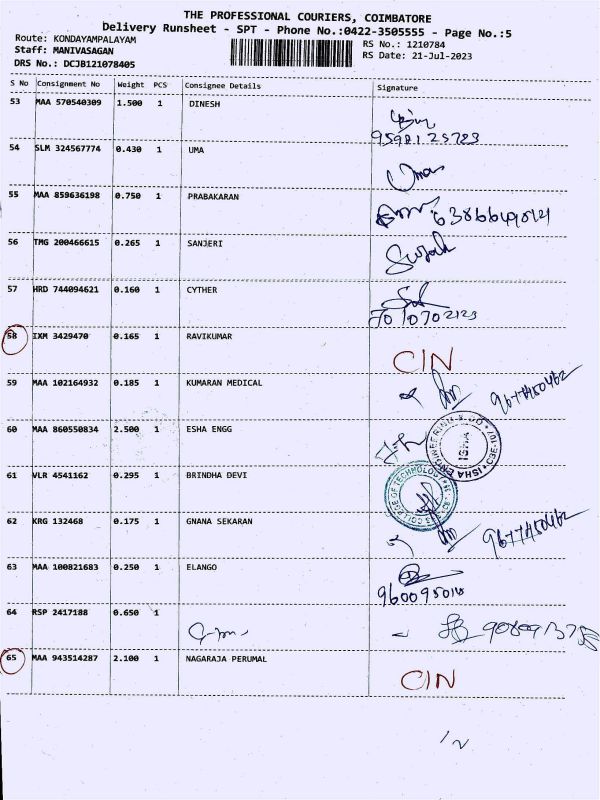 THE PROFESSIONAL COURIERS, COIMBATORE
Delivery Runsheet - SPT - Phone No.:0422-3505555 - Page No.:5
Route: KONDAYAMPALAYAM
RS No.: 1210784
Staff: MANIVASAGAN
RS Date: 21-Jul-2023
DRS No.: DCJB121078405
S No Consignment No Weight PCS Consignee Details Signature
53 MAA 570540309 1.500 1 DINESH
54 SLM 324567774 0.430 1 UMA
Uma
55 MAA 859636198 0.750 1 PRABAKARAN
56 TMG 200466615 0.265 1 SANJERI
57 HRD 744094621 0.160 1 CYTHER
58 IXM 3429470 0.165 1 RAVIKUMAR
CIN
59 MAA 102164932 0.185 1 KUMARAN MEDICAL
60 MAA 860550834 2.500 1 ESHA ENGG
61 VLR 4541162 0.295 1 BRINDHA DEVI
62 KRG 132468 0.175 1 GNANA SEKARAN
63 MAA 100821683 0.250 1 ELANGO
64 RSP 2417188 0.650 1
65 MAA 943514287 2.100 1 NAGARAJA PERUMAL
CIN